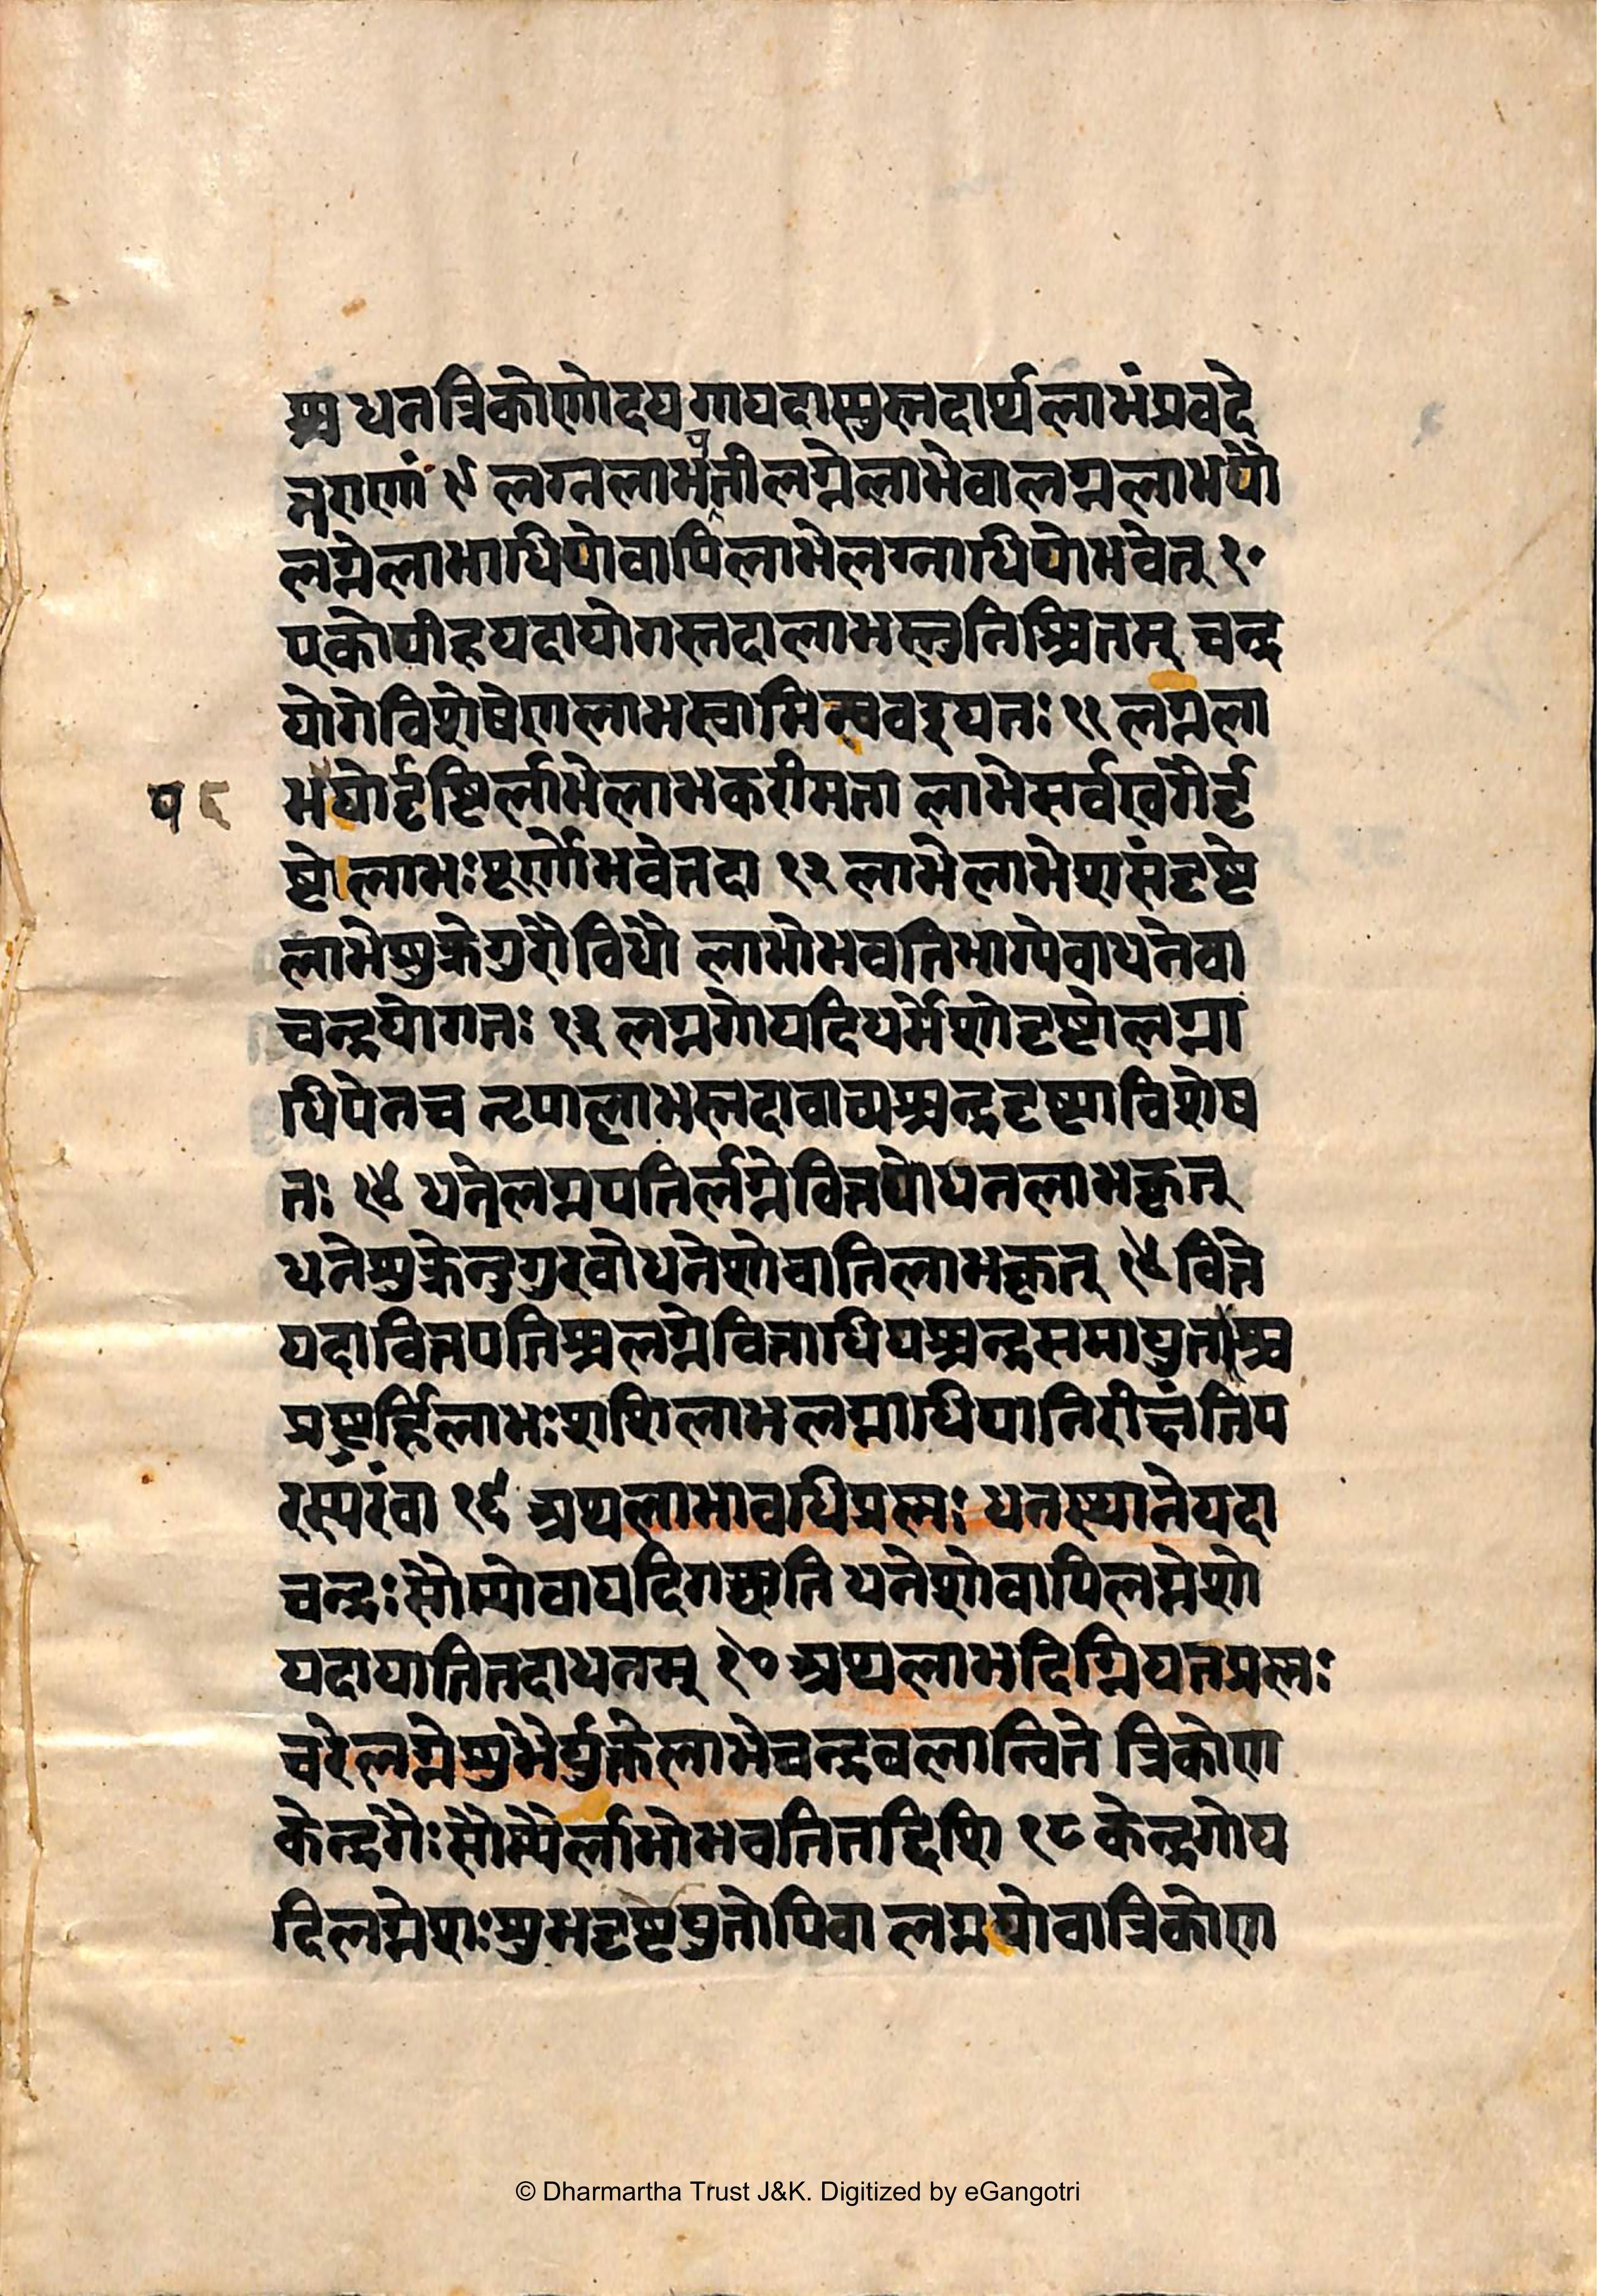 श्च धनत्रिकोणोदयगायदास्युस्तदार्थलाभंप्रवदे
न्नराणां ९ लग्नलाभपतीलग्नेलाभेवालग्नलाभपौ
लग्नेलाभाधिपोवापिलाभेलग्नाधिपोभवेत् १०
एकोपीहयदायोगस्तदालाभस्तुनिश्चितम् चन्द्र
योगेविशेषेणलाभस्वामिन्यवद्ययतः ११ लग्नला
भपोर्दृष्टिर्लाभेलाभकरीमता लाभेसर्वखगैर्दृ
ष्टेलाभःपूर्णोभवेत्तदा १२ लाभेलाभेशसंदृष्टे
लाभेशुक्रेगुरौविधौ लाभोभवतिभाग्येवाधनेवा
चन्द्रयोगतः १३ लग्नगोयदिधर्मेशोदृष्टोलग्ना
धिपेनच नृपाल्लाभस्तदावाच्यश्चन्द्रदृष्ट्याविशेष
तः १४ धनेलग्नपतिर्लग्नेवित्तपोधनलाभकृत्
धनेशुक्रेन्दुगुरवोधनेशोवातिलाभकृत् १५ वित्ते
यदावित्तपतिश्चलग्नेवित्ताधिपश्चन्द्रसमायुतश्च
प्रष्टुर्हिलाभःशशिलाभलग्नाधिपानिरीक्षंतिप
रस्परंवा १६ अथलाभावधिप्रश्नः धनस्थानेयदा
चन्द्रःसौम्योवायदिगच्छति धनेशोवापिलग्नेशो
यदायातितदाधनम् १७ अथलाभदिग्नियतप्रश्नः
चरेलग्नेशुभैर्युक्तेलाभेचन्द्रबलान्विते त्रिकोण
केन्द्रगैःसौम्यैर्लाभोभवतितद्दिशि १८ केन्द्रगोय
दिलग्नेशःशुभदृष्टेयुतोपिवा लग्नपोवात्रिकोण
© Dharmartha Trust J&K. Digitized by eGangotri